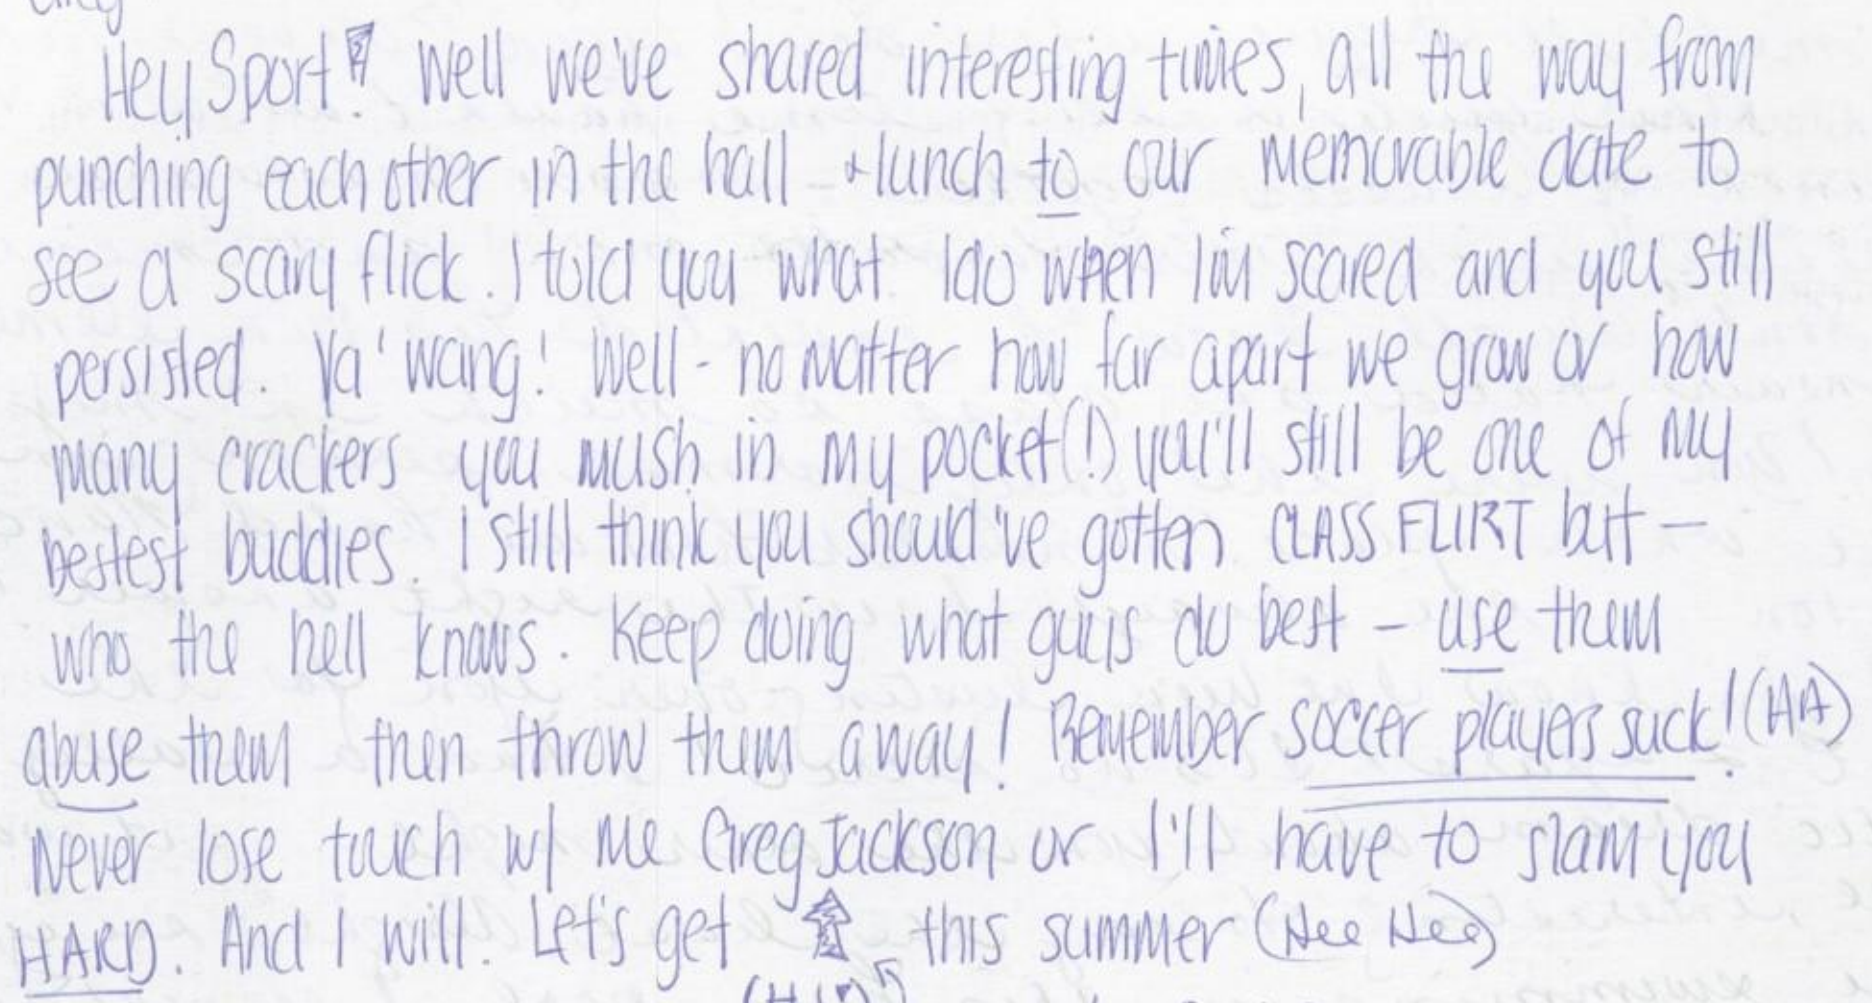 Hey, Sport! Well we've shared interesting times, all the way from
punching each other in the hall + lunch to our memorable date to
see a scary flick. I told you what I do when I'm scared and you still
persisted. Ya' wang! Well - no matter how far apart we grow or how
many crackers you mush in my pocket (!) you'll still be one of my
bestest buddies. I still think you should've gotten CLASS FLIRT but -
who the hell knows. Keep doing what guys do best - use them
abuse them then throw them away! Remember soccer players suck! (HA)
Never lose touch w/ me Greg Jackson or I'll have to slam you
HARD. And I will. Let's get ⇧ this summer (Hee Hee)